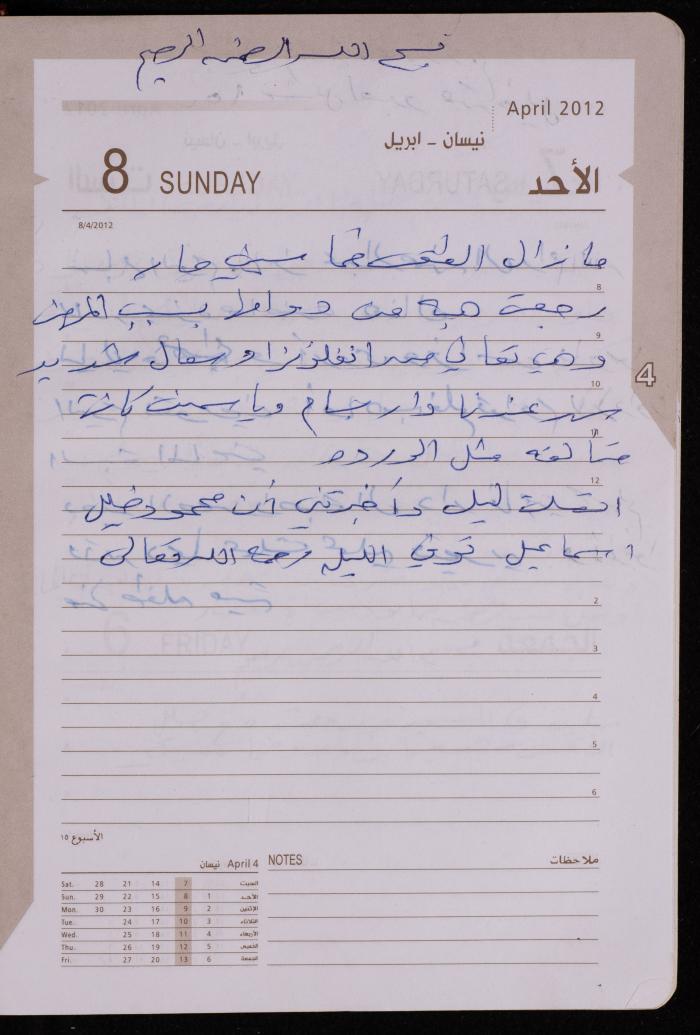 بسم الله الرحمن الرحيم
April 2012
نيسان - ابريل
8 SUNDAY
الأحد
8/4/2012
ما زال الطقس خماسيني حار
رجعت هبه من دوامها بسبب المرض
وهي تعاني من انفلونزا وسعال شديد
سهر عندنا وياسمين كانت
متألقه مثل الورده
اتصلت ليلى وأخبرتني أن محمود خليل
اسماعيل توفي الليله رحمه الله تعالى
8
9
10
11
12
2
3
4
5
6
4
الأسبوع ١٥
April 4 نيسان
Sat. 28 21 14 7 السبت
Sun. 29 22 15 8 1 الأحد
Mon. 30 23 16 9 2 الإثنين
Tue. 24 17 10 3 الثلاثاء
Wed. 25 18 11 4 الأربعاء
Thu. 26 19 12 5 الخميس
Fri. 27 20 13 6 الجمعة
NOTES ملاحظات